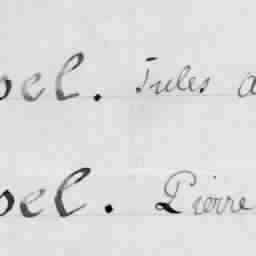 pel. Jules a
pel. Pierre